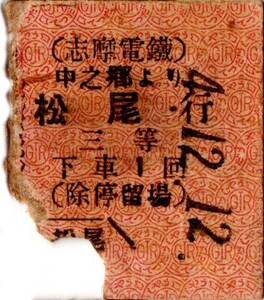 (志摩電鐵)
中之郷より
松尾行
三等
下車1回
(除停留場)
松尾
4.12.12.